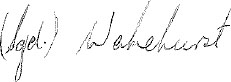 (Sgd.) Wakehurst